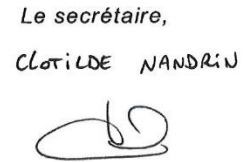 Le secrétaire,
CLOTILDE NANDRIN